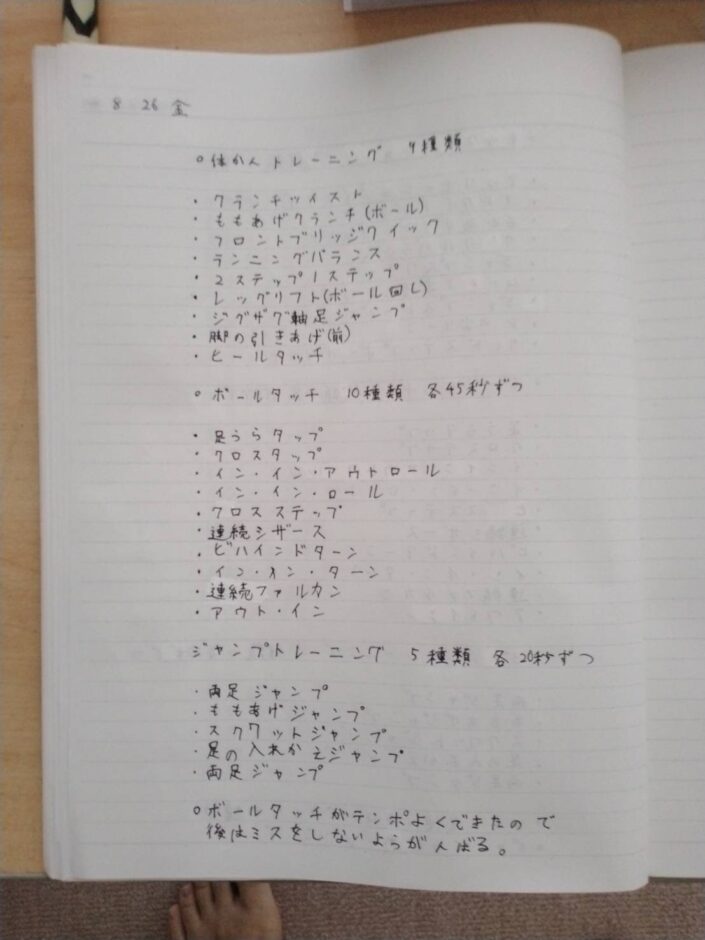 8 26 金
○体かんトレーニング 9種類
・クランチツイスト
・ももあげクランチ(ボール)
・フロントブリッジクイック
・ランニングバランス
・2ステップ1ステップ
・レッグリフト(ボール回し)
・ジグザグ軸足ジャンプ
・脚の引きあげ(前)
・ヒールタッチ
○ボールタッチ 10種類 各45秒ずつ
・足うらタップ
・クロスタップ
・イン・イン・アウトロール
・イン・イン・ロール
・クロスステップ
・連続シザース
・ビハインドターン
・イン・オン・ターン
・連続ファルカン
・アウト・イン
ジャンプトレーニング 5種類 各20秒ずつ
・両足ジャンプ
・ももあげジャンプ
・スクワットジャンプ
・足の入れかえジャンプ
・両足ジャンプ
○ボールタッチがテンポよくできたので
後はミスをしないようがんばる。